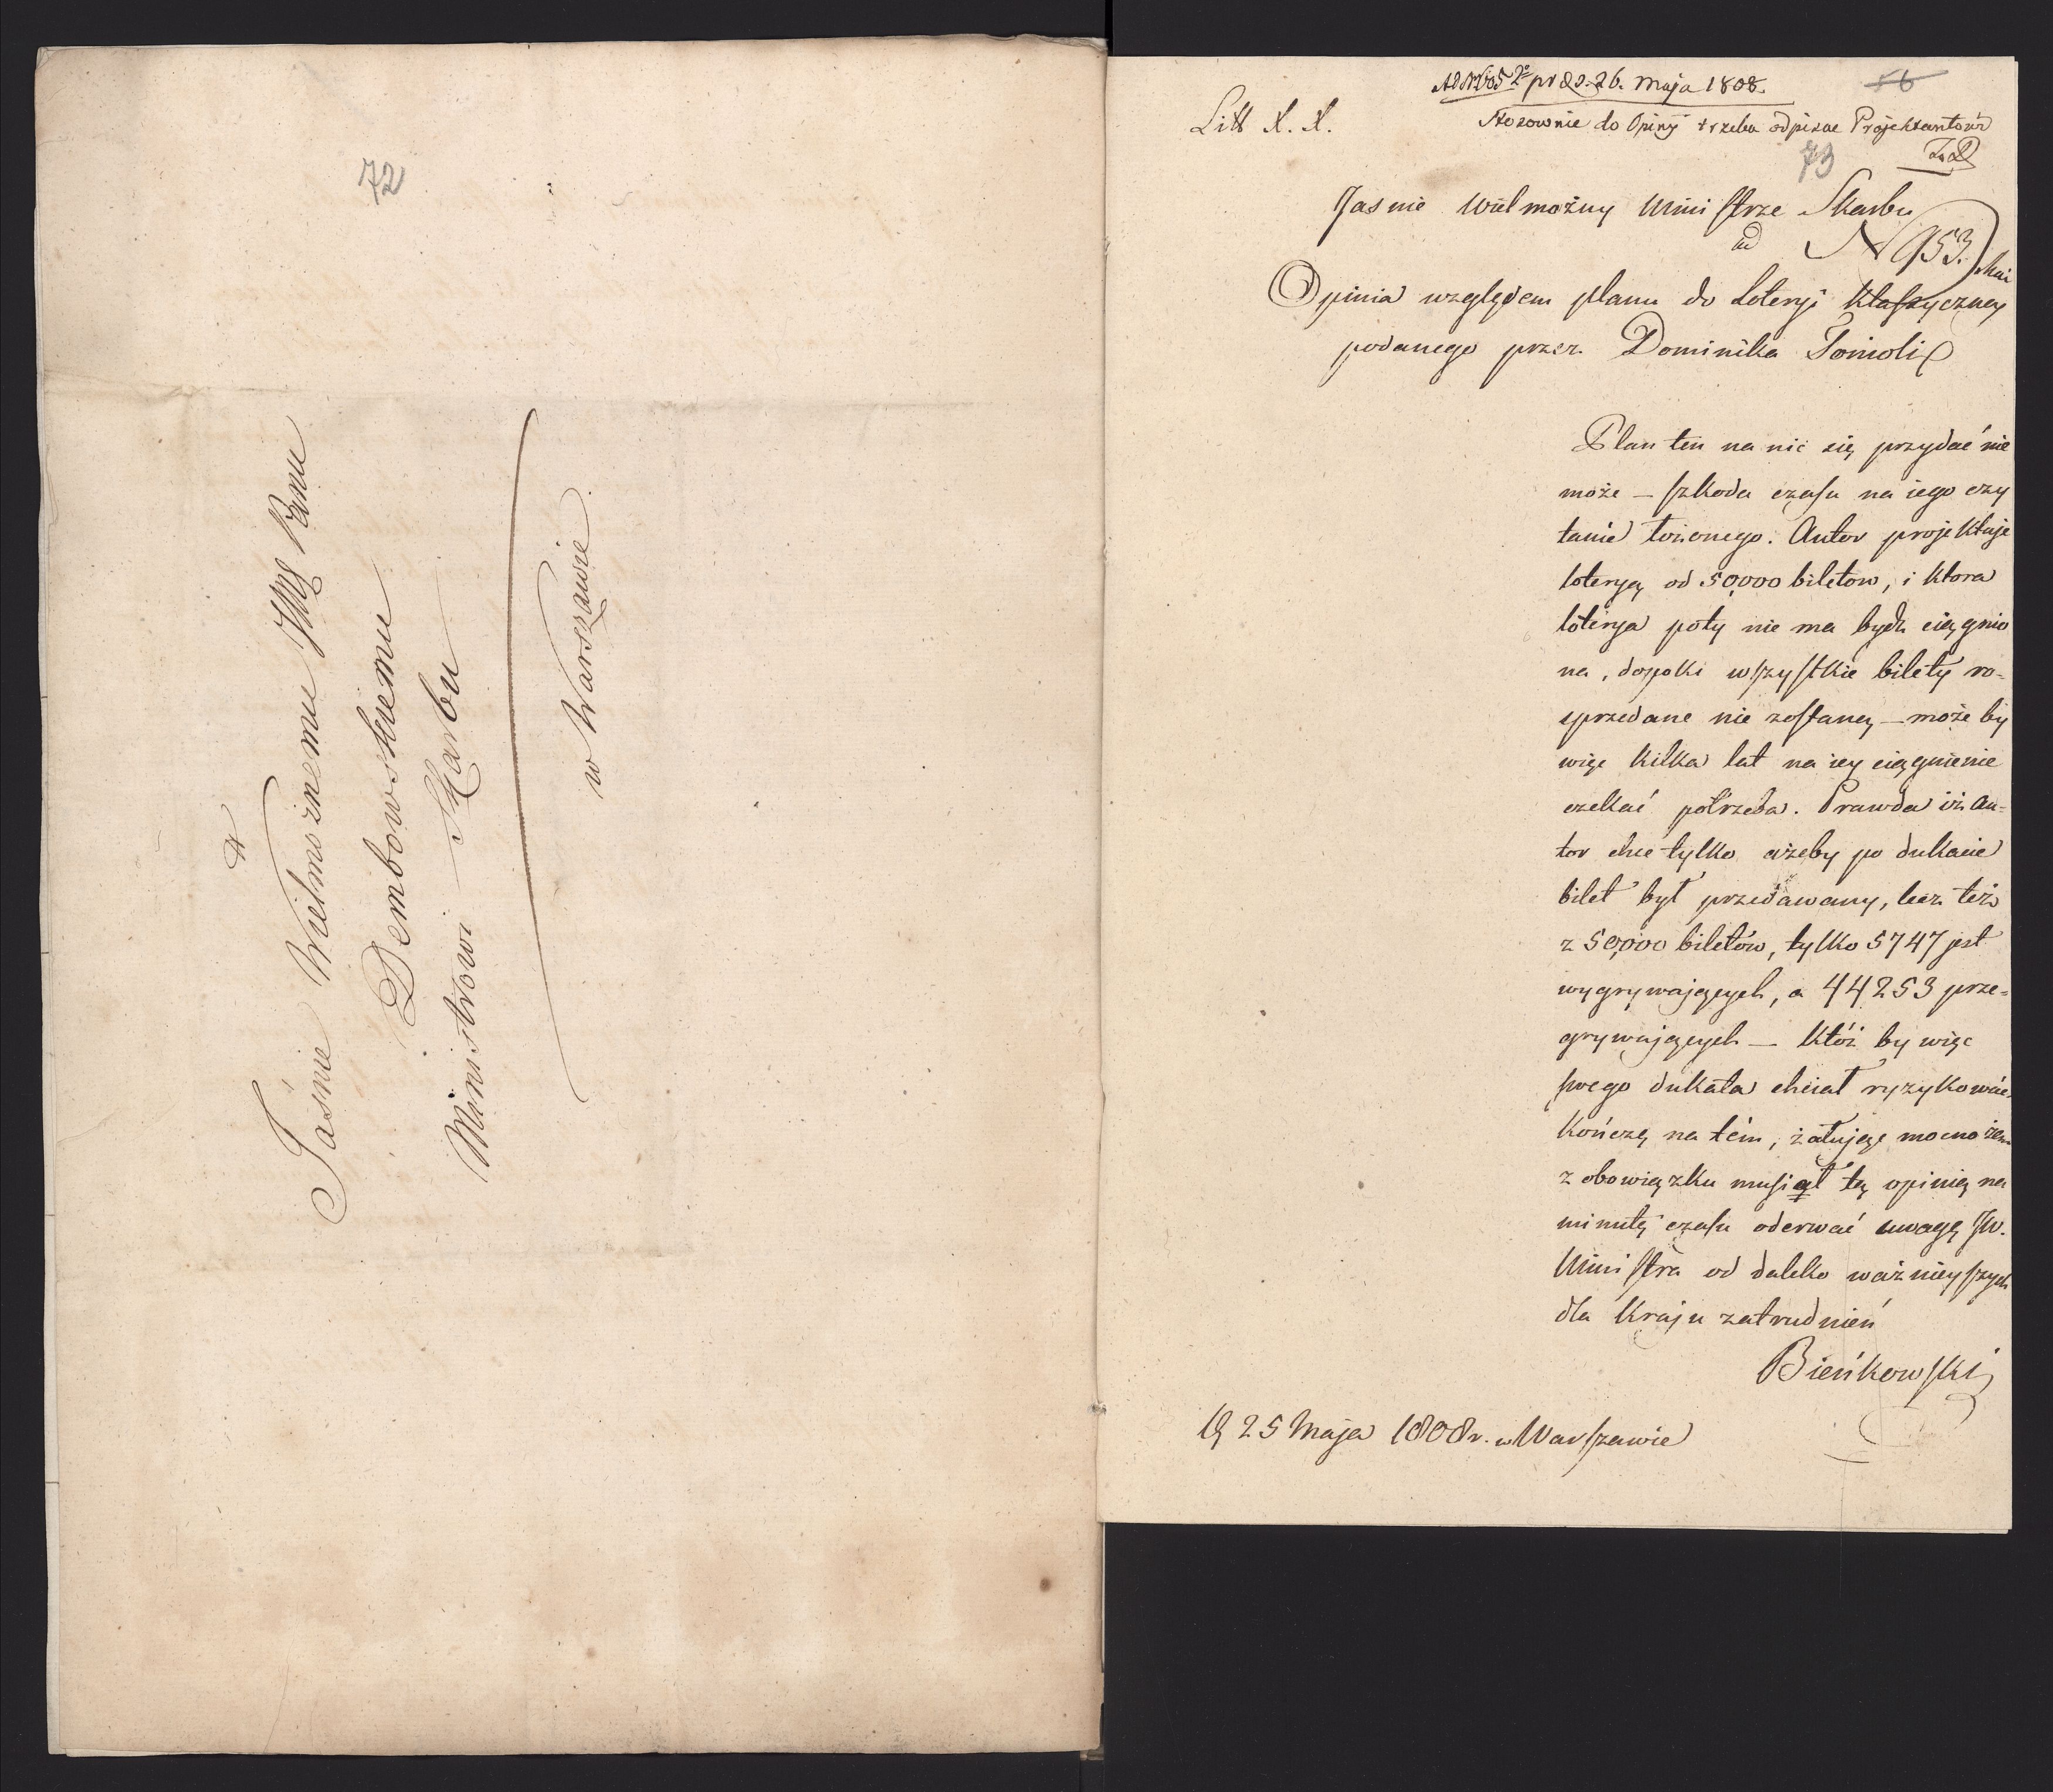 72
Jaśnie Wielmożnemu JMg Panu
Dembowskiemu
Ministrowi Skarbu
w Warszawie
prds. 26. Maja 1808.
56
Litt X. X.
Stosownie do Opinij trzeba odpisac Projektantowi
73
Jasnie Wielmożny Ministrze Skarbu
ad N 953.
Opinia względem planu do Loteryi Klassyczney
podanego przez Dominika Tonioli
Plan ten na nic się przydać nie
może — szkoda czasu na iego czy
tanie łożonego. Autor projektuje
loteryą od 50,000 biletow, i ktora
loterya poty nie ma bydz ciągnio
na, dopoki wszystkie bilety ro-
sprzedane nie zostaną — może by
więc kilka lat na iey ciągnienie
czekać potrzeba. Prawda iż Au-
tor chce tylko ażeby po dukacie
bilet był przedawany, lecz też
z 50,000 biletów, tylko 5747 jest
wygrywających, a 44253 prze-
grywających — któż by więc
swego dukata chciał ryzykować.
Kończę na tém, żałując mocno żem
z obowiązku musiał tą opinią na
minutę czasu oderwać uwagę JW.
Ministra od daleko ważnieyszych
dla Kraju zatrudnień
Bieńkowski
25 Maja 1808 r. w Warszawie